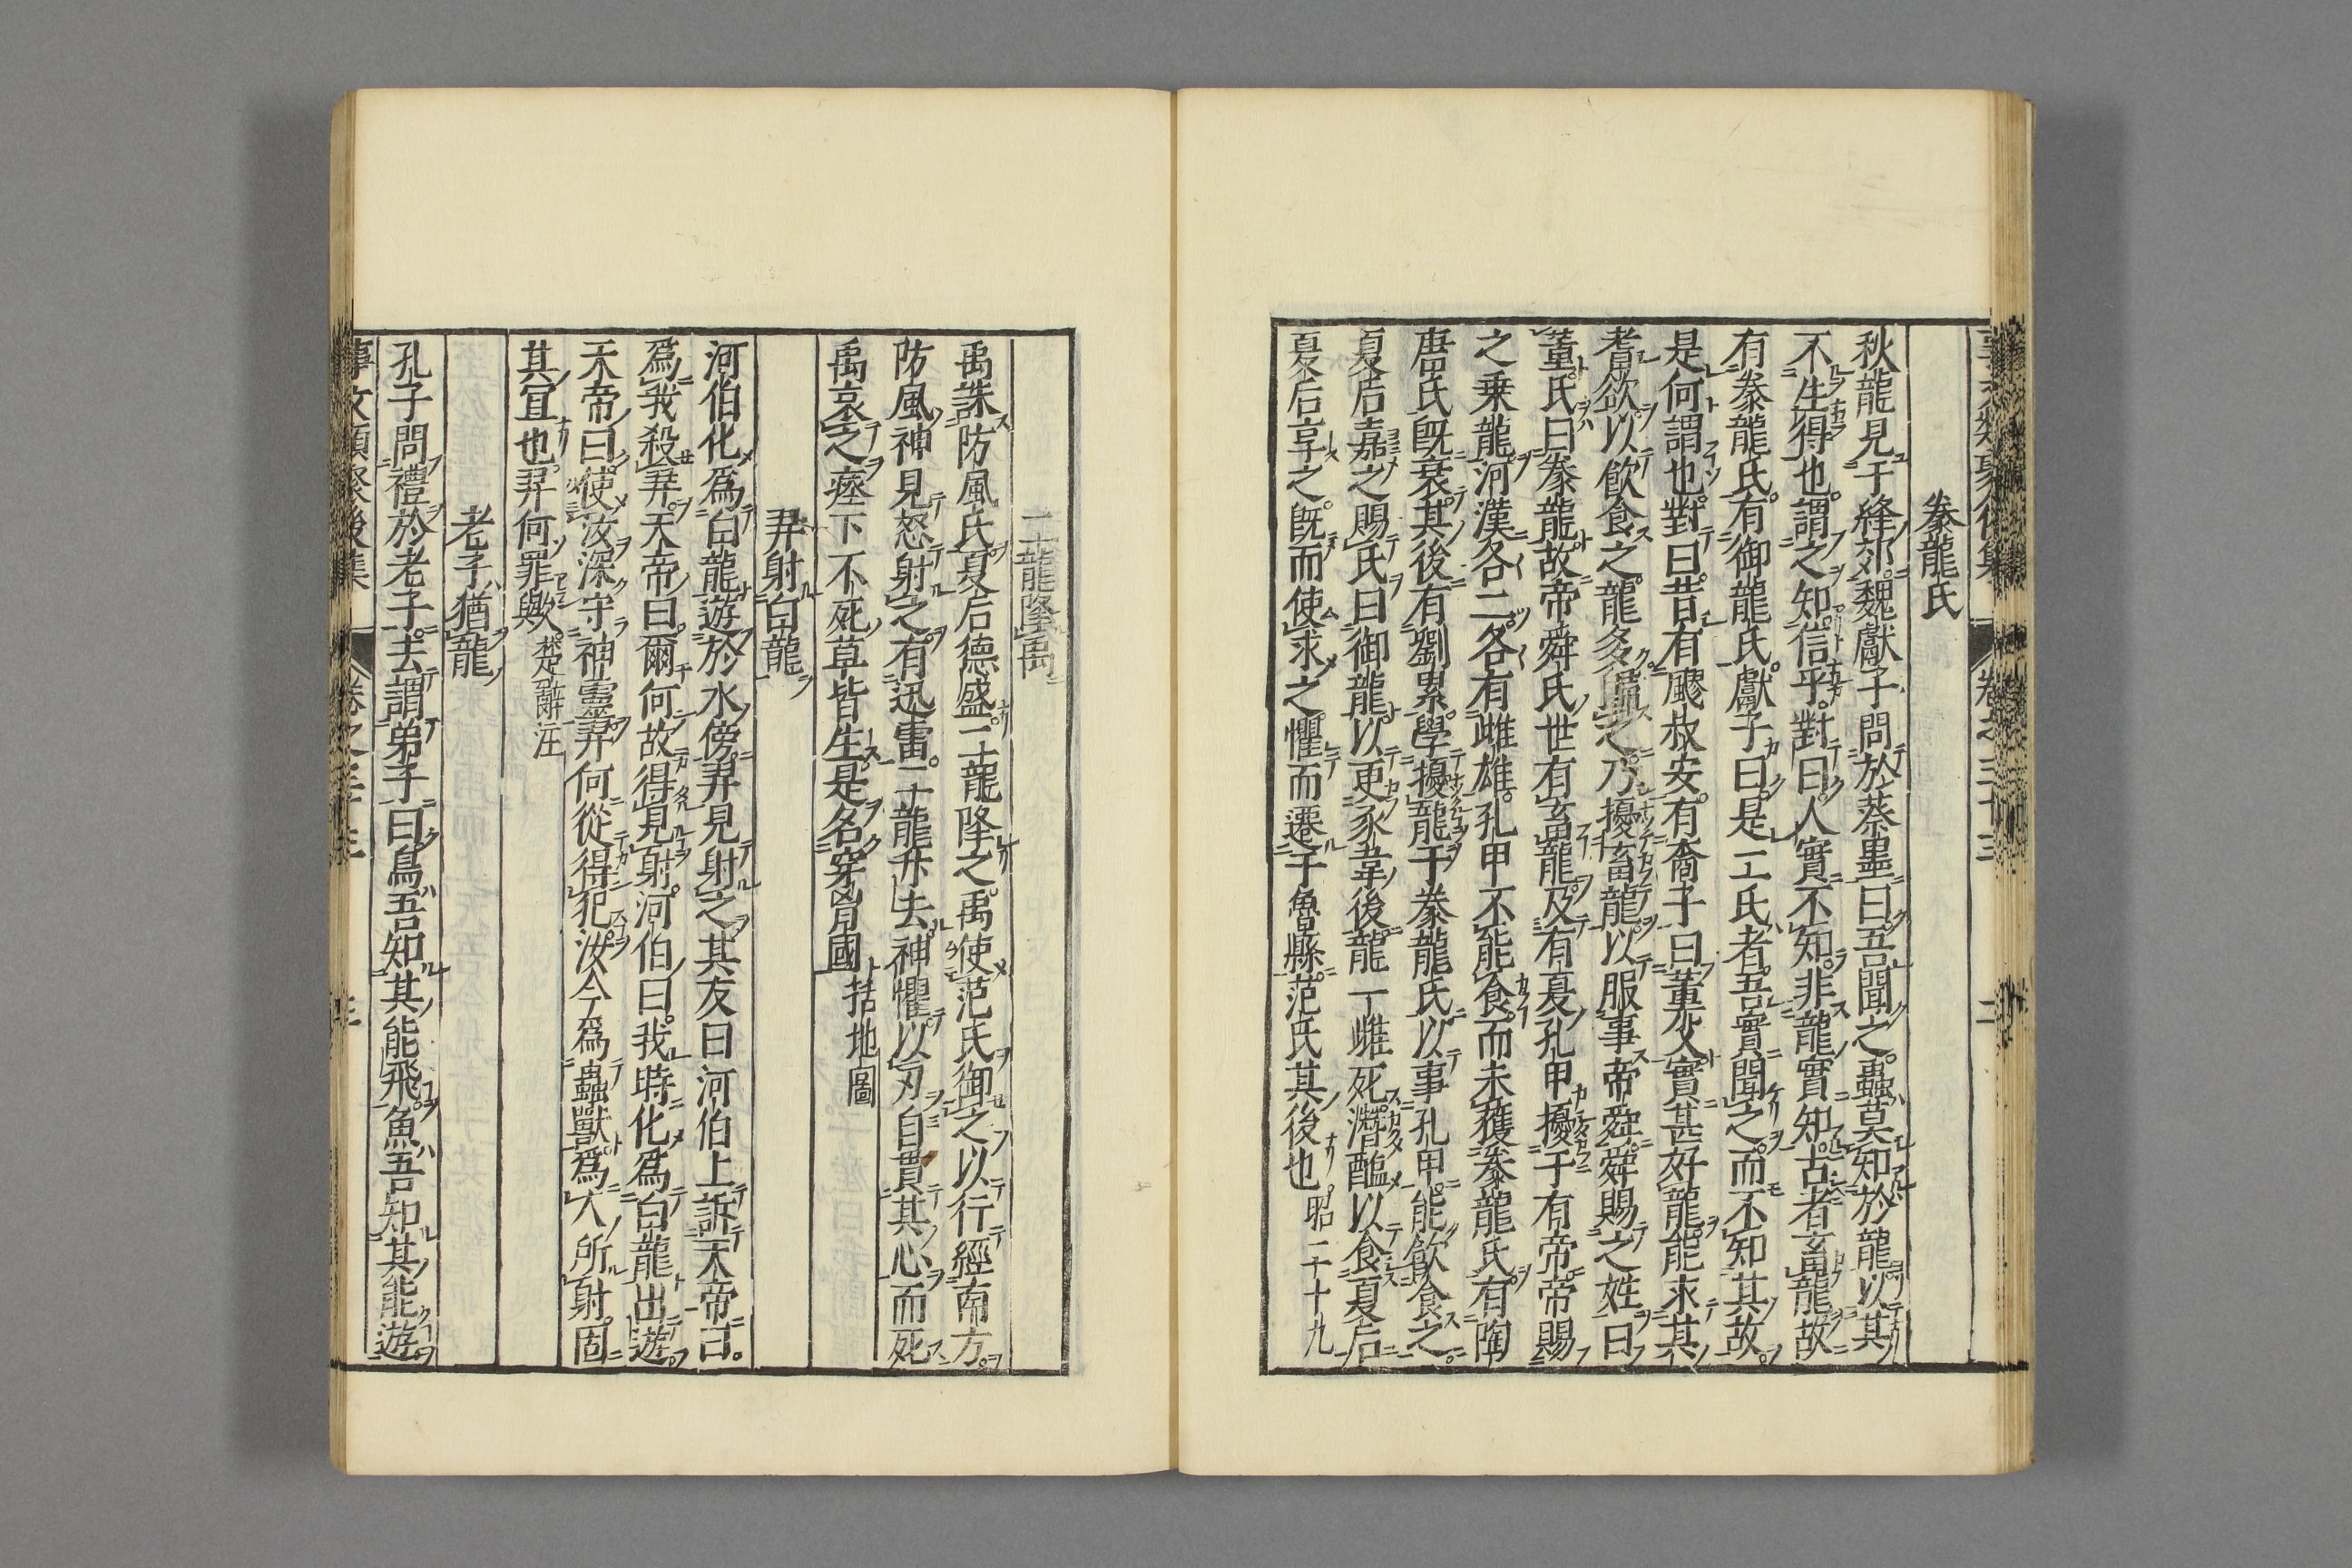 豢龍氏
秋龍見于絳郊魏獻子問於蔡墨曰吾聞之蟲莫知於龍以其
不生得也謂之知信乎對曰人實不知非龍實知古者畜龍故
有豢龍氏有御龍氏獻子曰是二氏者吾實聞之而不知其故
是何謂也對曰昔有飂叔安有裔子曰董父實甚好龍能求其
耆欲以飲食之龍多歸之乃擾畜龍以服事帝舜舜賜之姓曰
董氏曰豢龍故帝舜氏世有畜龍及有夏孔甲擾于有帝帝賜
之乗龍河漢各二各有雌雄孔甲不能食而未穫豢龍氏有陶
唐氏旣衰其後有劉累學擾龍于豢龍氏以事孔甲能飲食之
夏后嘉之賜氏曰御龍以更豕韋後龍一雌死潛醢以食夏后
夏后享之旣而使求之懼而遷于魯縣范氏其後也 昭二十九
卷之三十三
二
二龍降禹
禹誅防風氏夏后德盛二龍降之禹使范氏御之以行經南方
防風神見怒射之有迅雷二龍升去神懼以刃自貫其心而死
禹哀之瘞下不死草皆生是名穿胷國 括地圖
羿射白龍
河伯化爲白龍遊於水傍羿見射之其友曰河伯上訴天帝曰
爲我殺羿天帝曰爾何故得見射河伯曰我時化爲白龍出遊
天帝曰使汝深守神靈羿何從得犯汝今爲蟲獸爲人所射固
其冝也羿何罪歟 楚辭注
老子猶龍
孔子問禮於老子去謂弟子曰鳥吾知其能飛魚吾知其能遊
事文類聚後集
卷之三十三
三